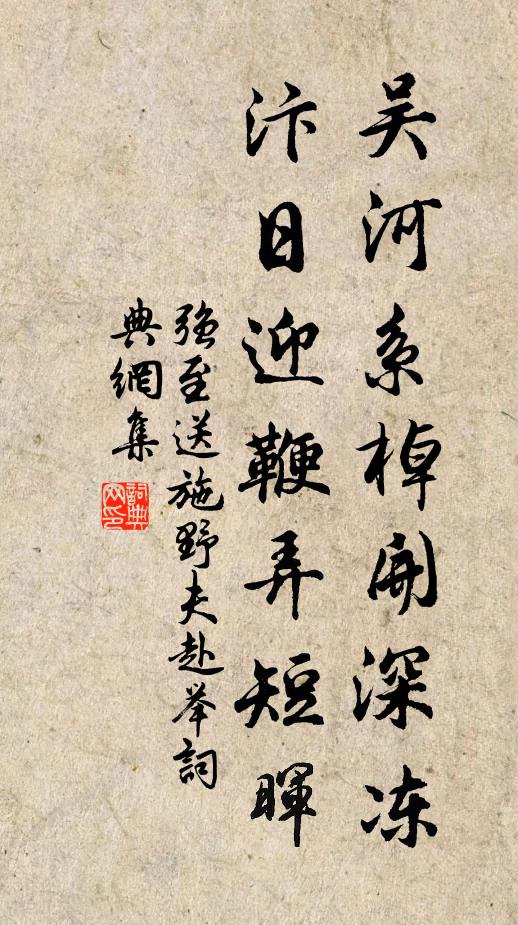 吴河系棹開深冻
汴日迎鞭弄短暉
強至送施野夫赴举詞
典網集
詞典
网印